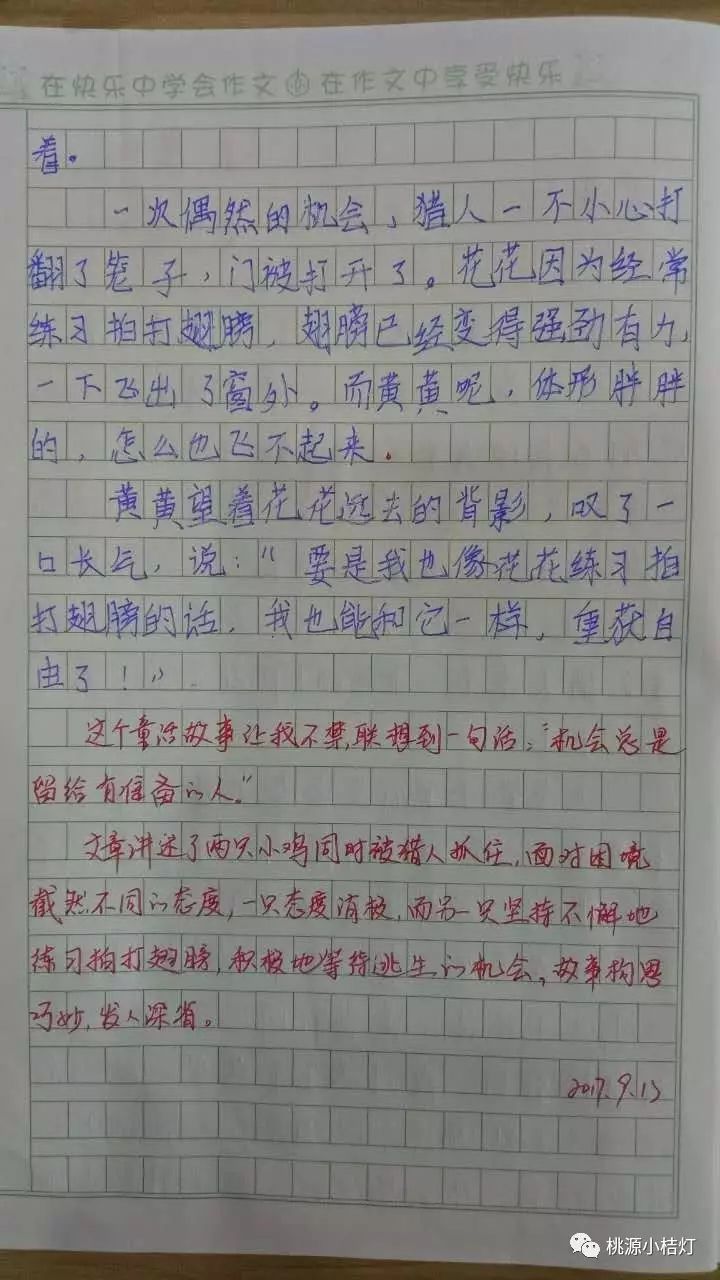 在快乐中学会作文 在作文中享受快乐
着。
一次偶然的机会，猎人一不小心打
翻了笼子，门被打开了。花花因为经常
练习拍打翅膀，翅膀已经变得强劲有力，
一下飞出了窗外。而黄黄呢，体形胖胖
的，怎么也飞不起来。
黄黄望着花花远去的背影，叹了一
口长气，说：“要是我也像花花练习拍
打翅膀的话，我也能和它一样，重获自
由了！”
这个童话故事让我不禁联想到一句话：“机会总是
留给有准备的人。”
文章讲述了两只小鸡同时被猎人抓住，面对困境
截然不同的态度，一只态度消极，而另一只坚持不懈地
练习拍打翅膀，积极地等待逃生的机会，故事构思
巧妙，发人深省。
2017.9.13
桃源小桔灯